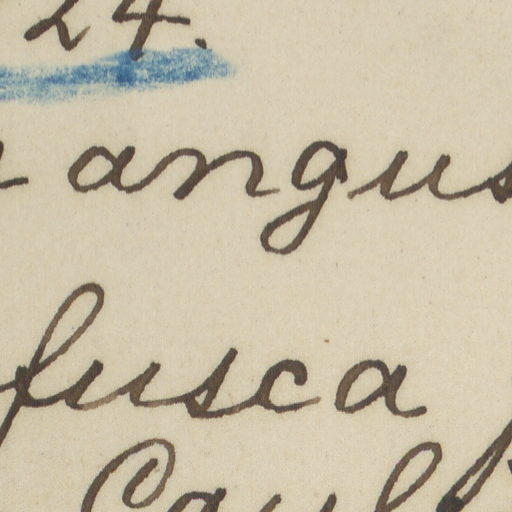 24.
angus
fusca
Caul